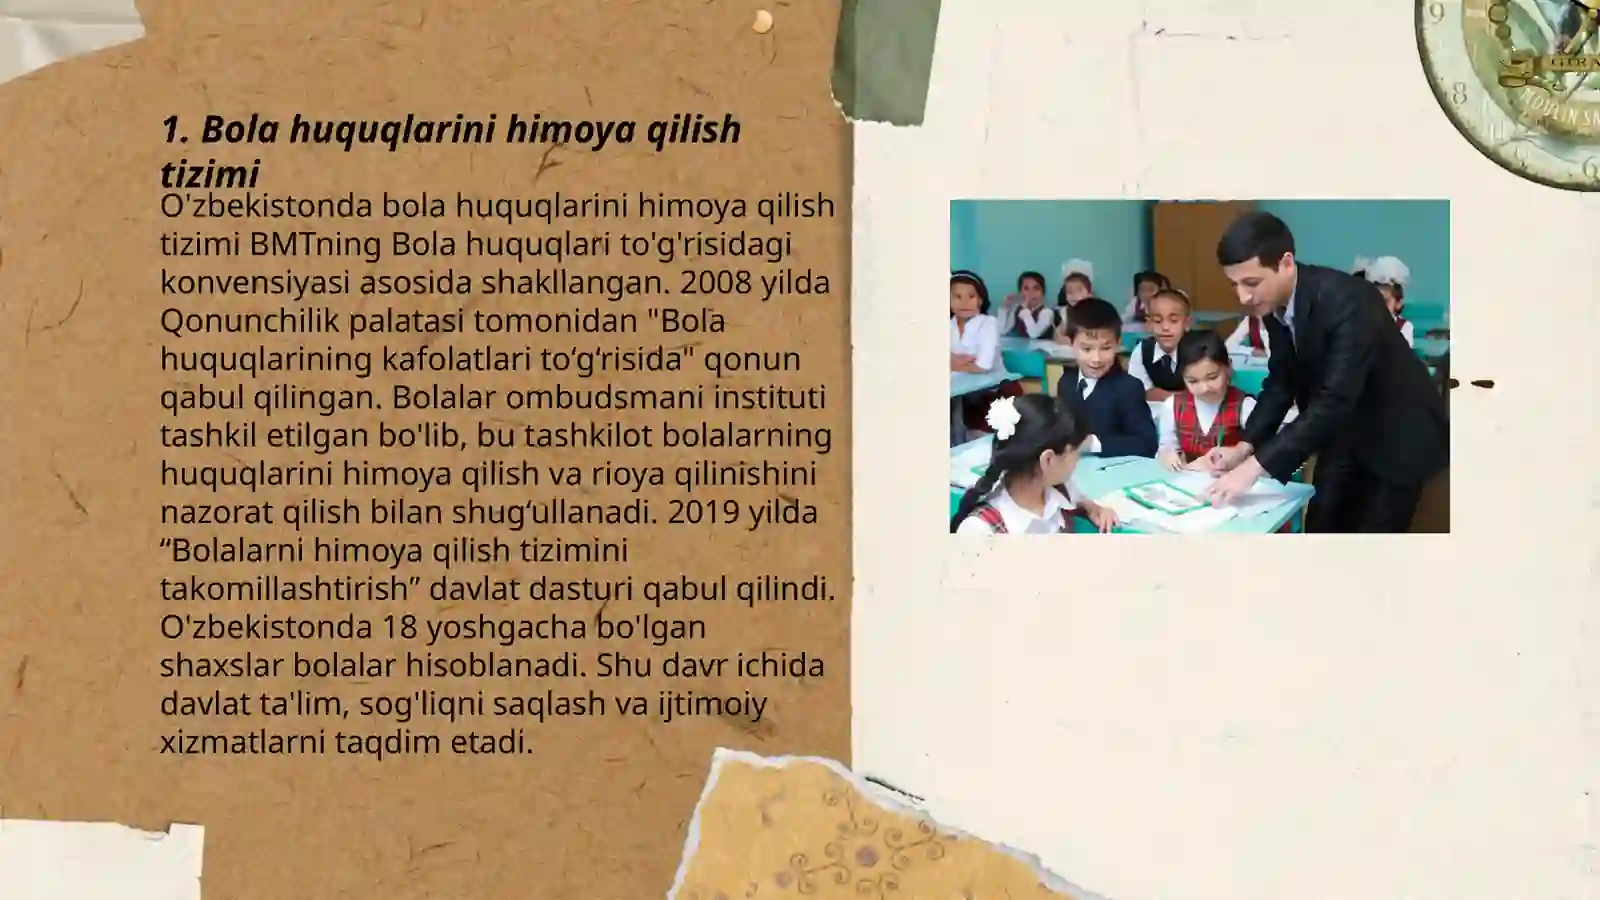 1. Bola huquqlarini himoya qilish
tizimi
O'zbekistonda bola huquqlarini himoya qilish
tizimi BMTning Bola huquqlari to'g'risidagi
konvensiyasi asosida shakllangan. 2008 yilda
Qonunchilik palatasi tomonidan "Bola
huquqlarining kafolatlari to‘g‘risida" qonun
qabul qilingan. Bolalar ombudsmani instituti
tashkil etilgan bo'lib, bu tashkilot bolalarning
huquqlarini himoya qilish va rioya qilinishini
nazorat qilish bilan shug‘ullanadi. 2019 yilda
“Bolalarni himoya qilish tizimini
takomillashtirish” davlat dasturi qabul qilindi.
O'zbekistonda 18 yoshgacha bo'lgan
shaxslar bolalar hisoblanadi. Shu davr ichida
davlat ta'lim, sog'liqni saqlash va ijtimoiy
xizmatlarni taqdim etadi.
9
8
6